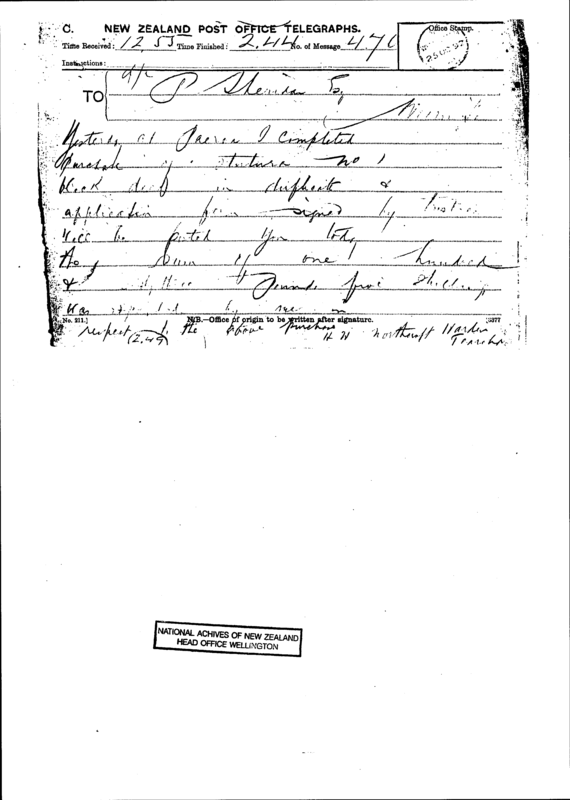 C. NEW ZEALAND POST OFFICE TELEGRAPHS.
Office Stamp.
Time Received: 12 55 Time Finished: 2.44 No. of Message 476
25 97
Instructions:
TO P Sheridan Esq
Yesterday at Paeroa I completed
Purchase of No 1
block deed in duplicate &
application form signed by
will be posted you today
The sum of one hundred
& Pounds five shillings
was by me in
No. 211.] N.B.—Office of origin to be written after signature.
respect to the above purchase
(2.49) H W Northcroft Warden
NATIONAL ACHIVES OF NEW ZEALAND
HEAD OFFICE WELLINGTON